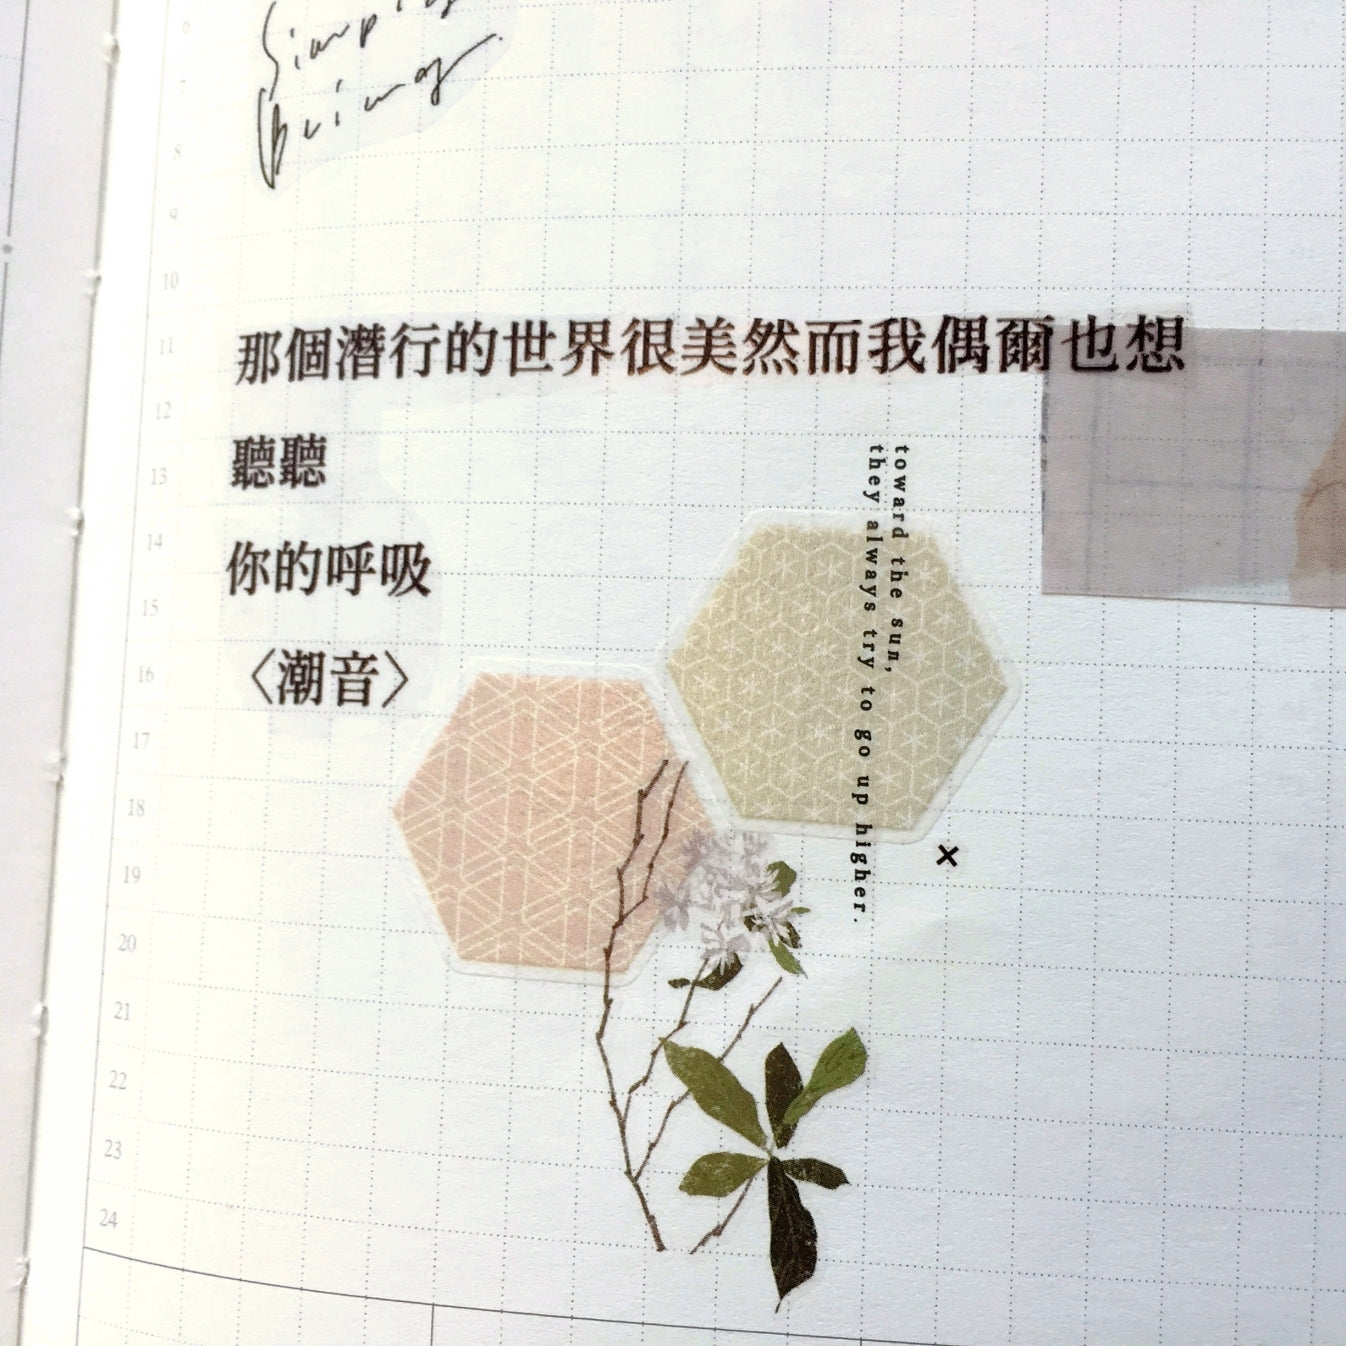 Simply
Being.
6
7
8
9
10
11
12
13
14
15
16
17
18
19
20
21
22
23
24
那個潛行的世界很美然而我偶爾也想
聽聽
你的呼吸
〈潮音〉
toward the sun,
they always try to go up higher.
×